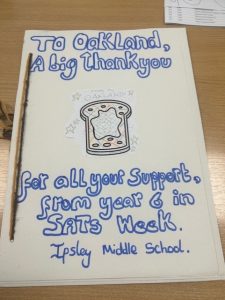 To Oakland,
A big thank you
OAKLAND
for all your support,
from year 6 in
SATs Week.
Ipsley Middle School.